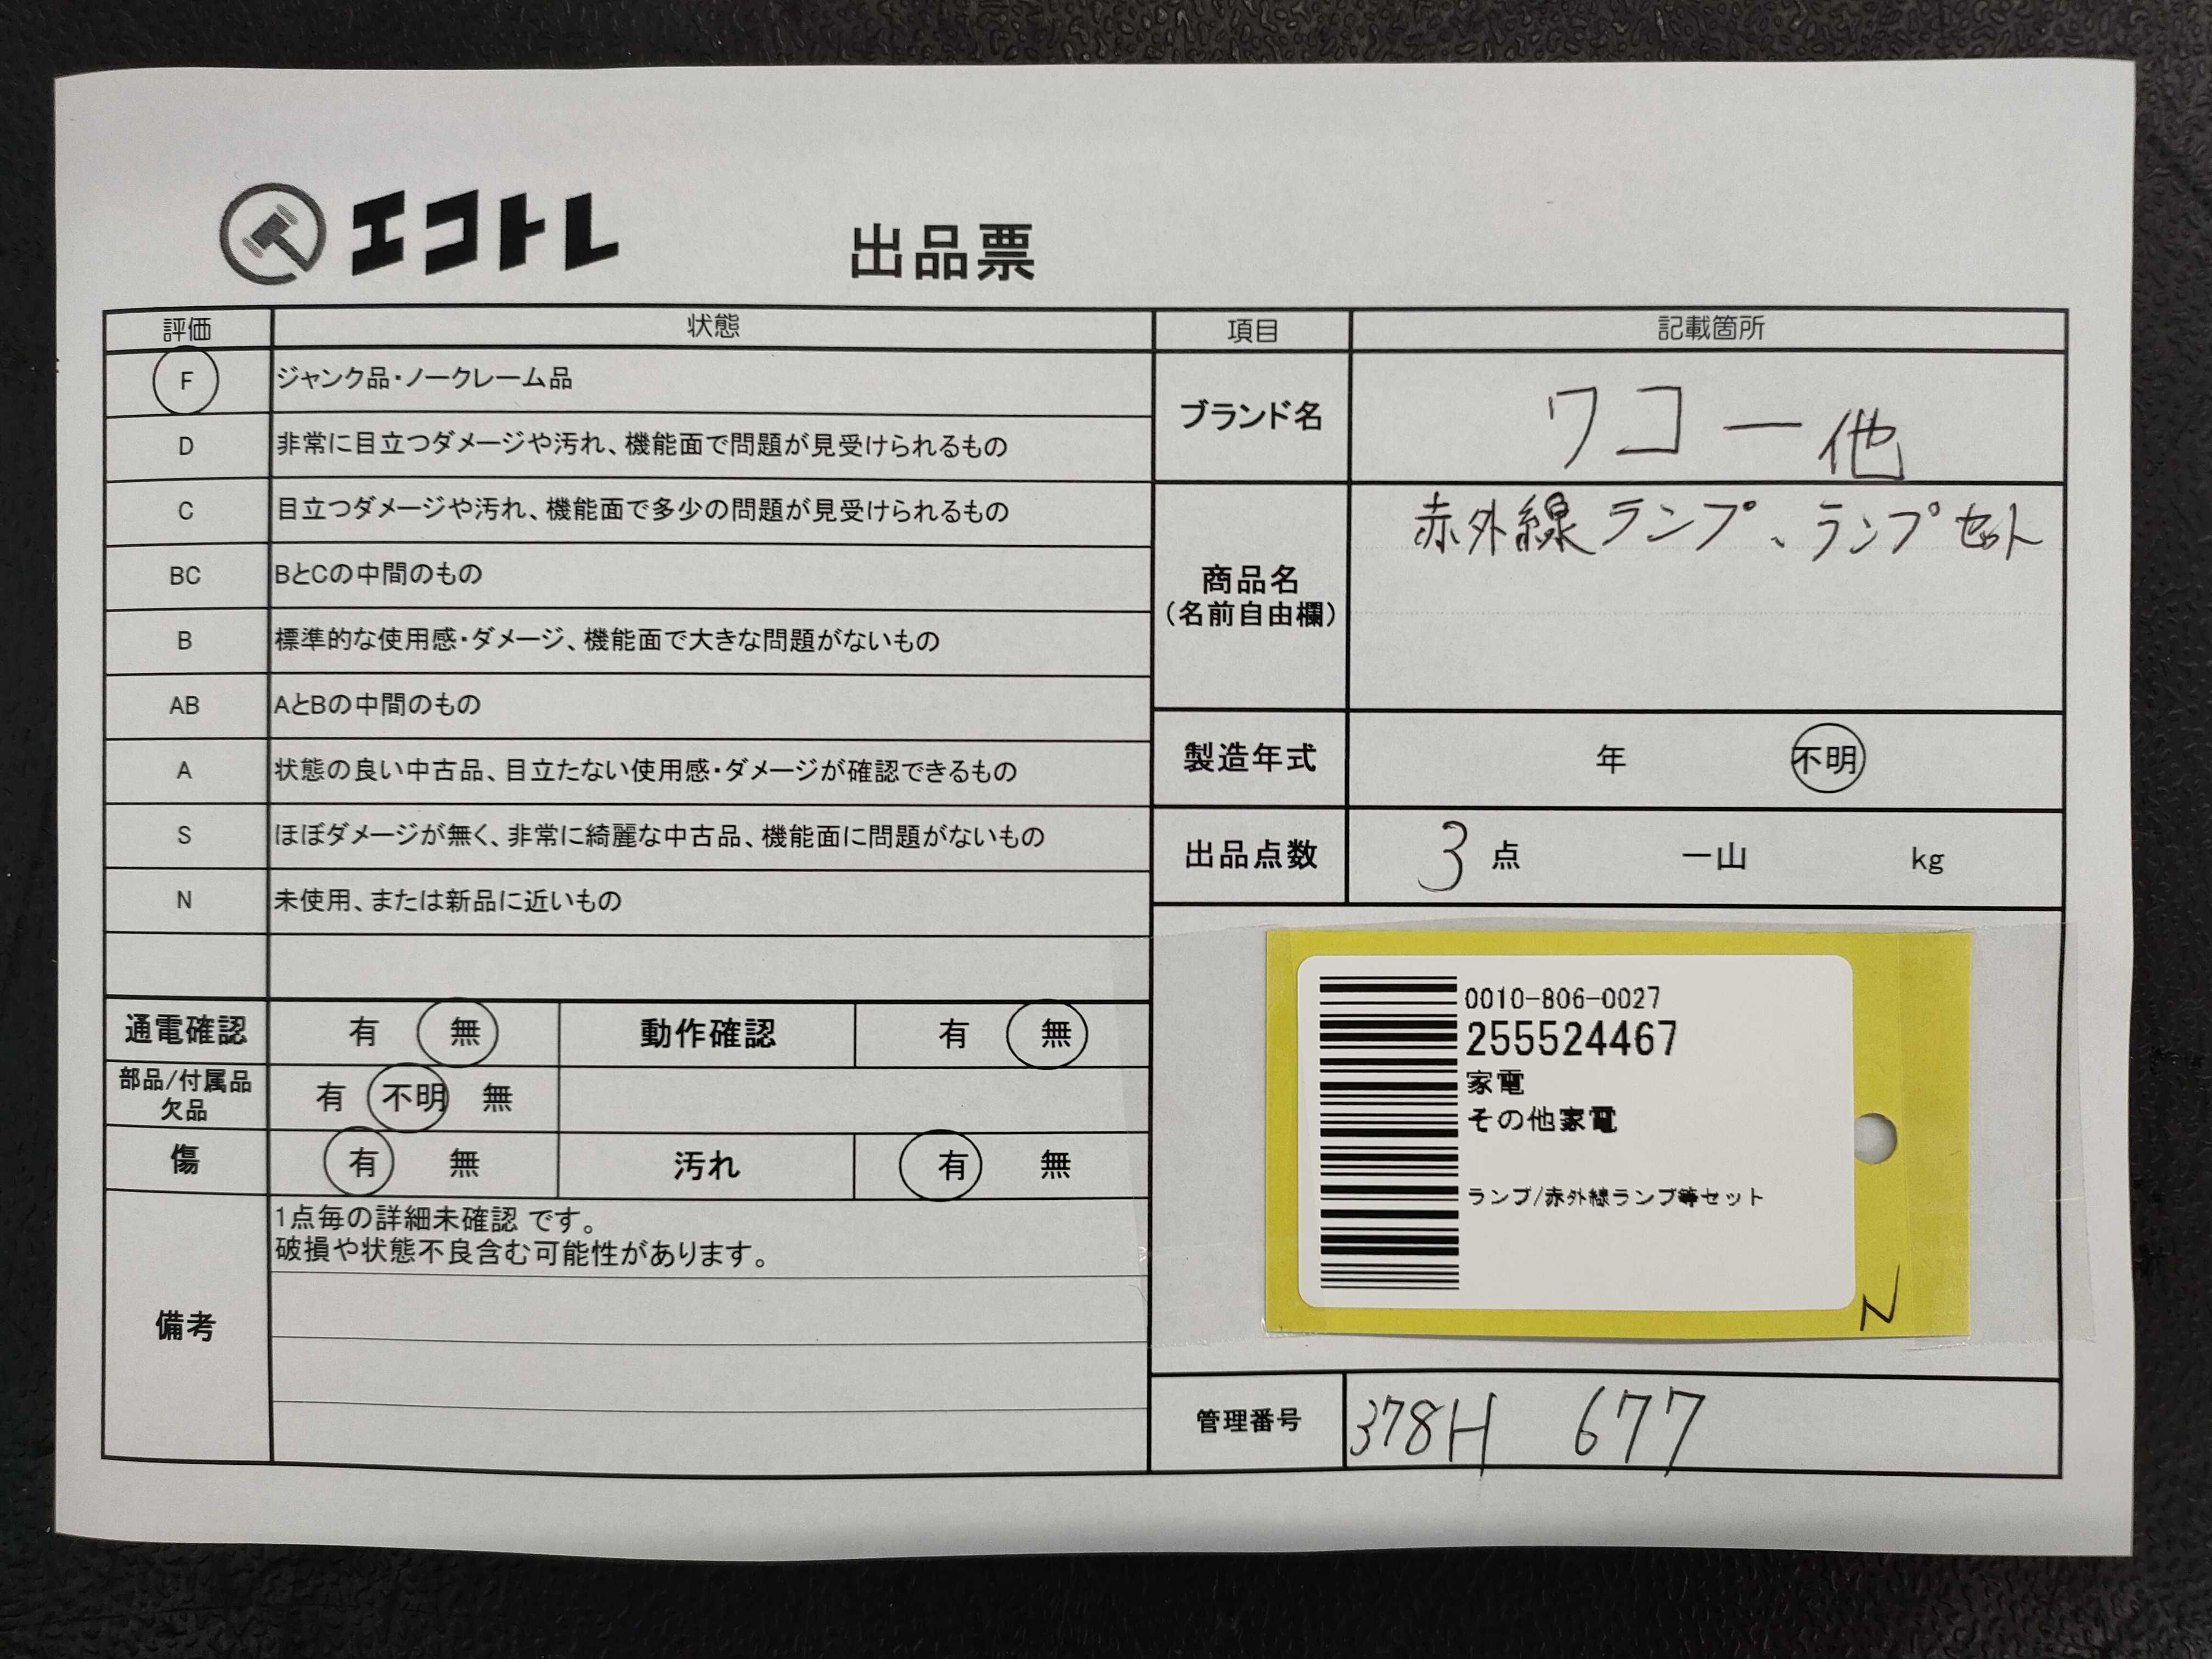 エコトレ
出品票
評価 状態
F ジャンク品・ノークレーム品
D 非常に目立つダメージや汚れ、機能面で問題が見受けられるもの
C 目立つダメージや汚れ、機能面で多少の問題が見受けられるもの
BC BとCの中間のもの
B 標準的な使用感・ダメージ、機能面で大きな問題がないもの
AB AとBの中間のもの
A 状態の良い中古品、目立たない使用感・ダメージが確認できるもの
S ほぼダメージが無く、非常に綺麗な中古品、機能面に問題がないもの
N 未使用、または新品に近いもの
通電確認 有 無 動作確認 有 無
部品/付属品
欠品
有 不明 無
傷 有 無 汚れ 有 無
備考
1点毎の詳細未確認 です。
破損や状態不良含む可能性があります。
項目 記載箇所
ブランド名 ワコー他
商品名
(名前自由欄)
赤外線ランプ、ランプセット
製造年式 年 不明
出品点数 3 点 一山 kg
0010-806-0027
255524467
家電
その他家電
ランプ/赤外線ランプ等セット
N
管理番号 378H 677